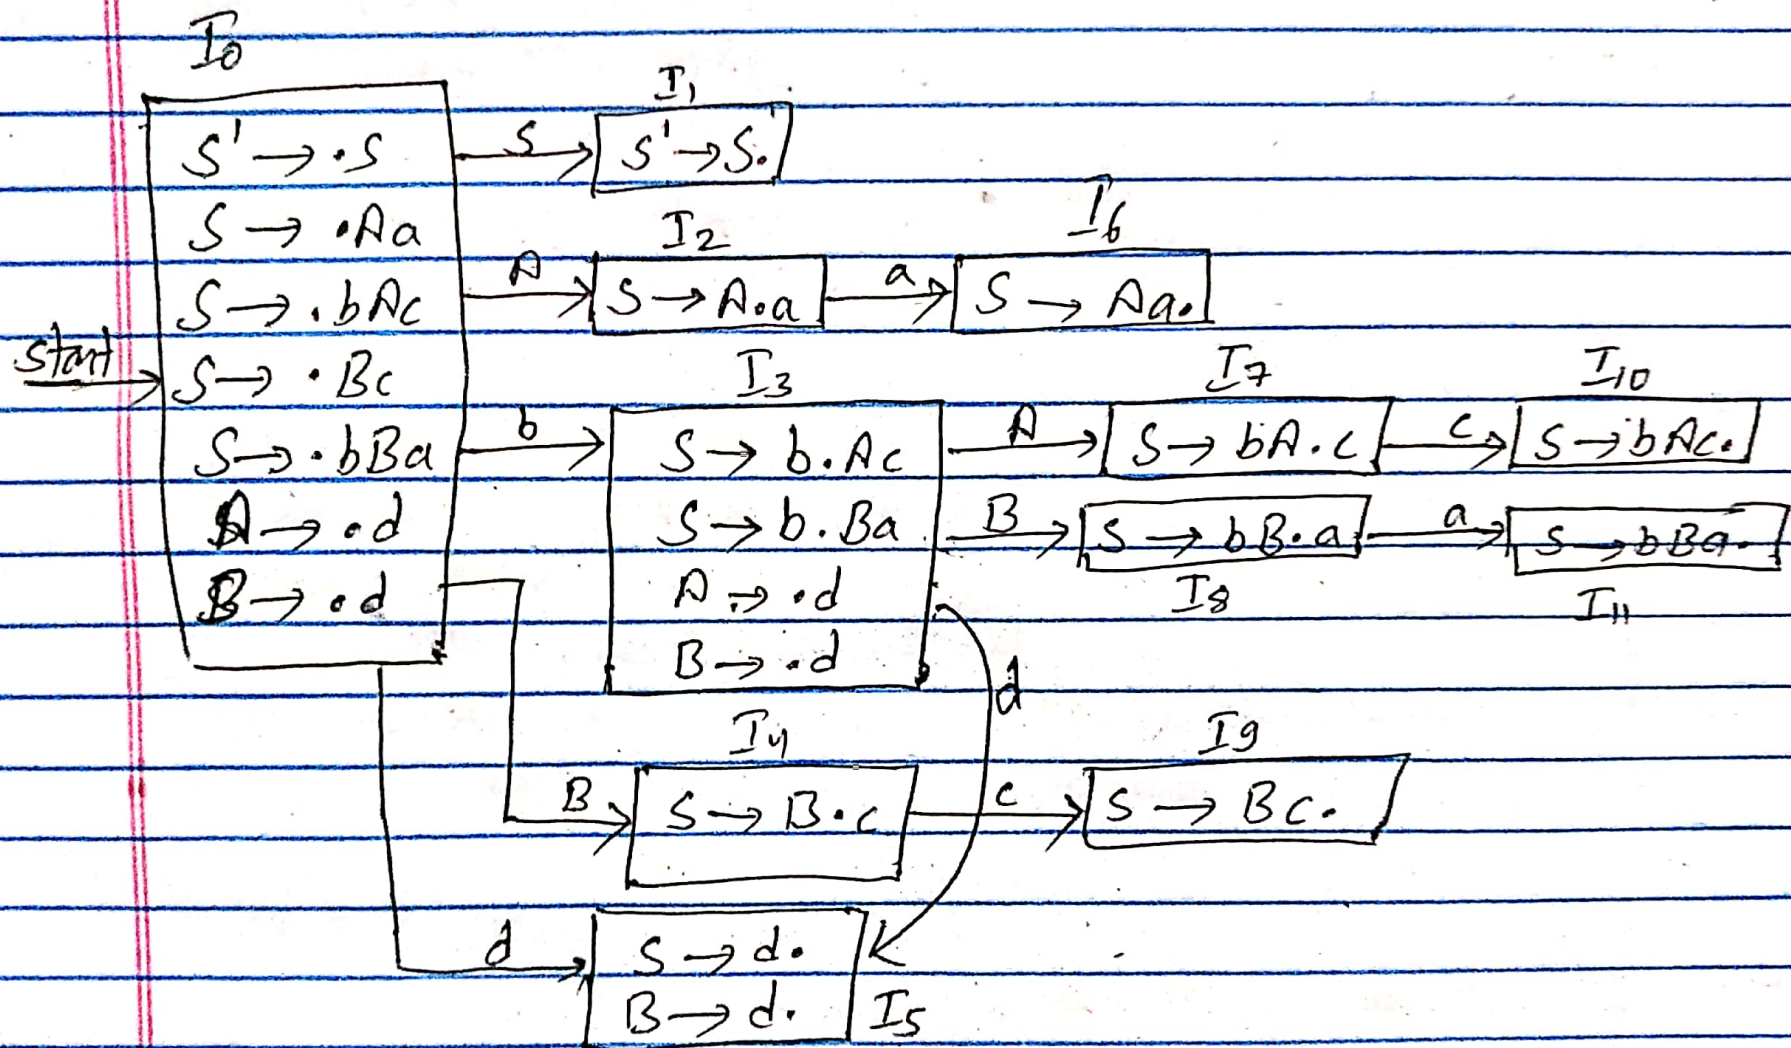 I0
S' → .S
S → .Aa
S → .bAc
start
S → .Bc
S → .bBa
A → .d
B → .d
S
I1
S' → S.
A
I2
S → A.a
a
I6
S → Aa.
b
I3
S → b.Ac
S → b.Ba
A → .d
B → .d
A
I7
S → bA.c
c
I10
S → bAc.
B
S → bB.a
I8
a
S → bBa.
I11
d
B
I4
S → B.c
c
I9
S → Bc.
d
S → d.
B → d.
I5